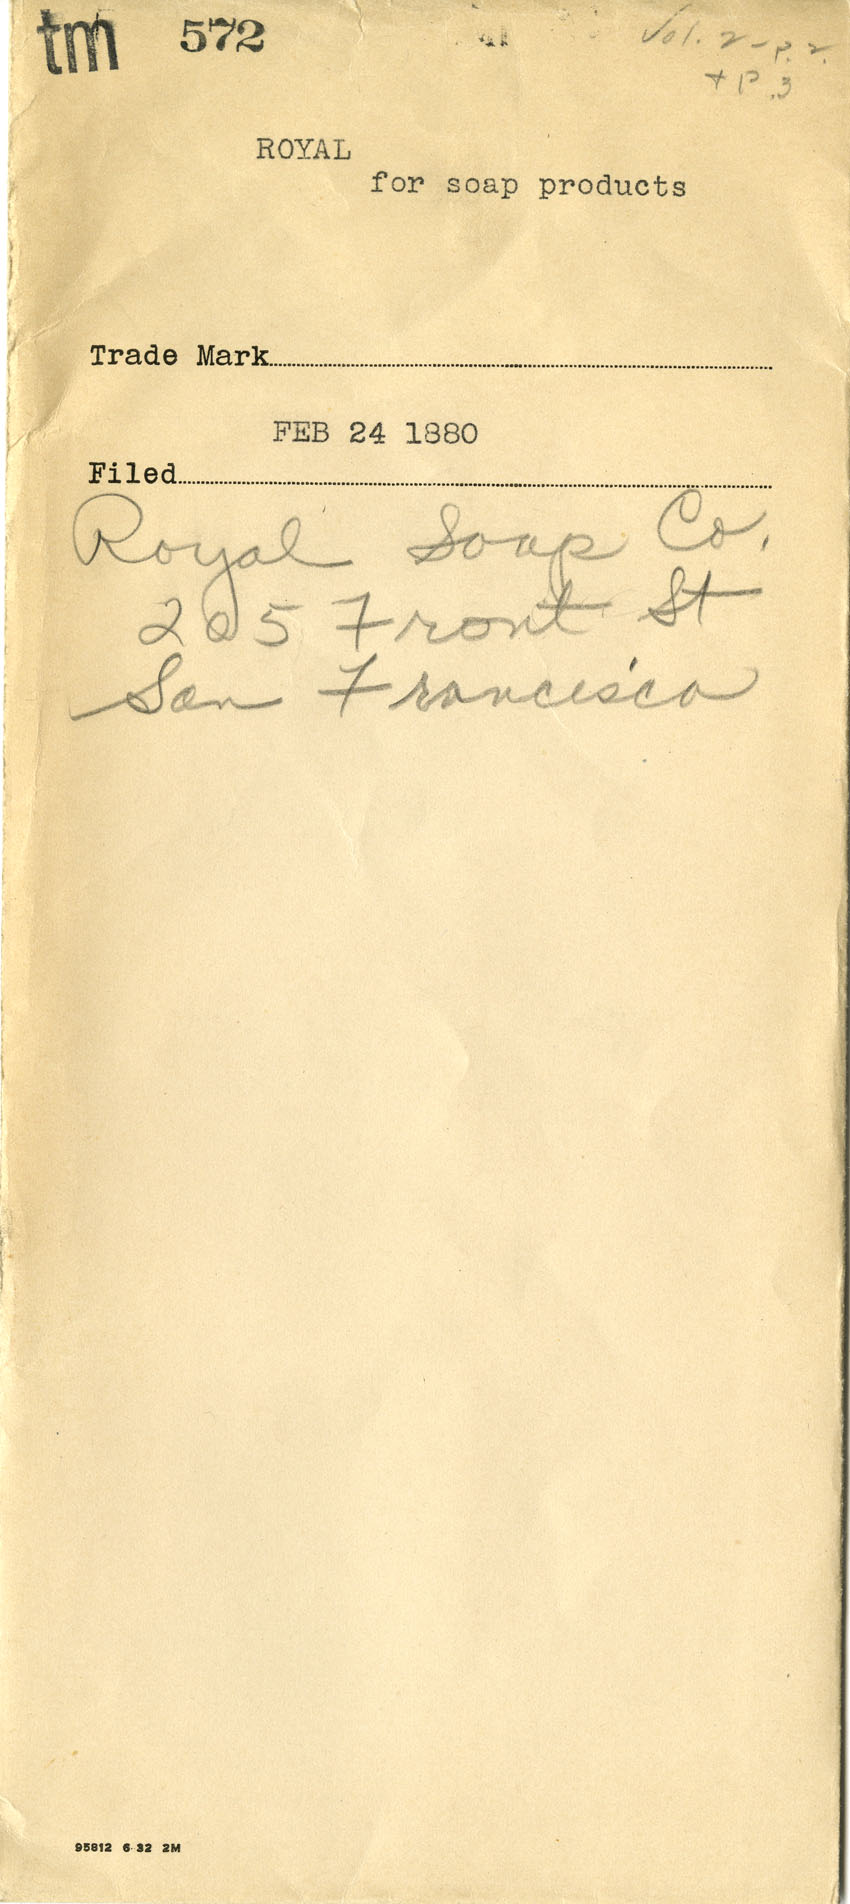 tm 572 Vol. 2 - p. 2.
+ P. 3
ROYAL
for soap products
Trade Mark
FEB 24 1880
Filed
Royal Soap Co.
205 Front St
San Francisco
95812 6-32 2M